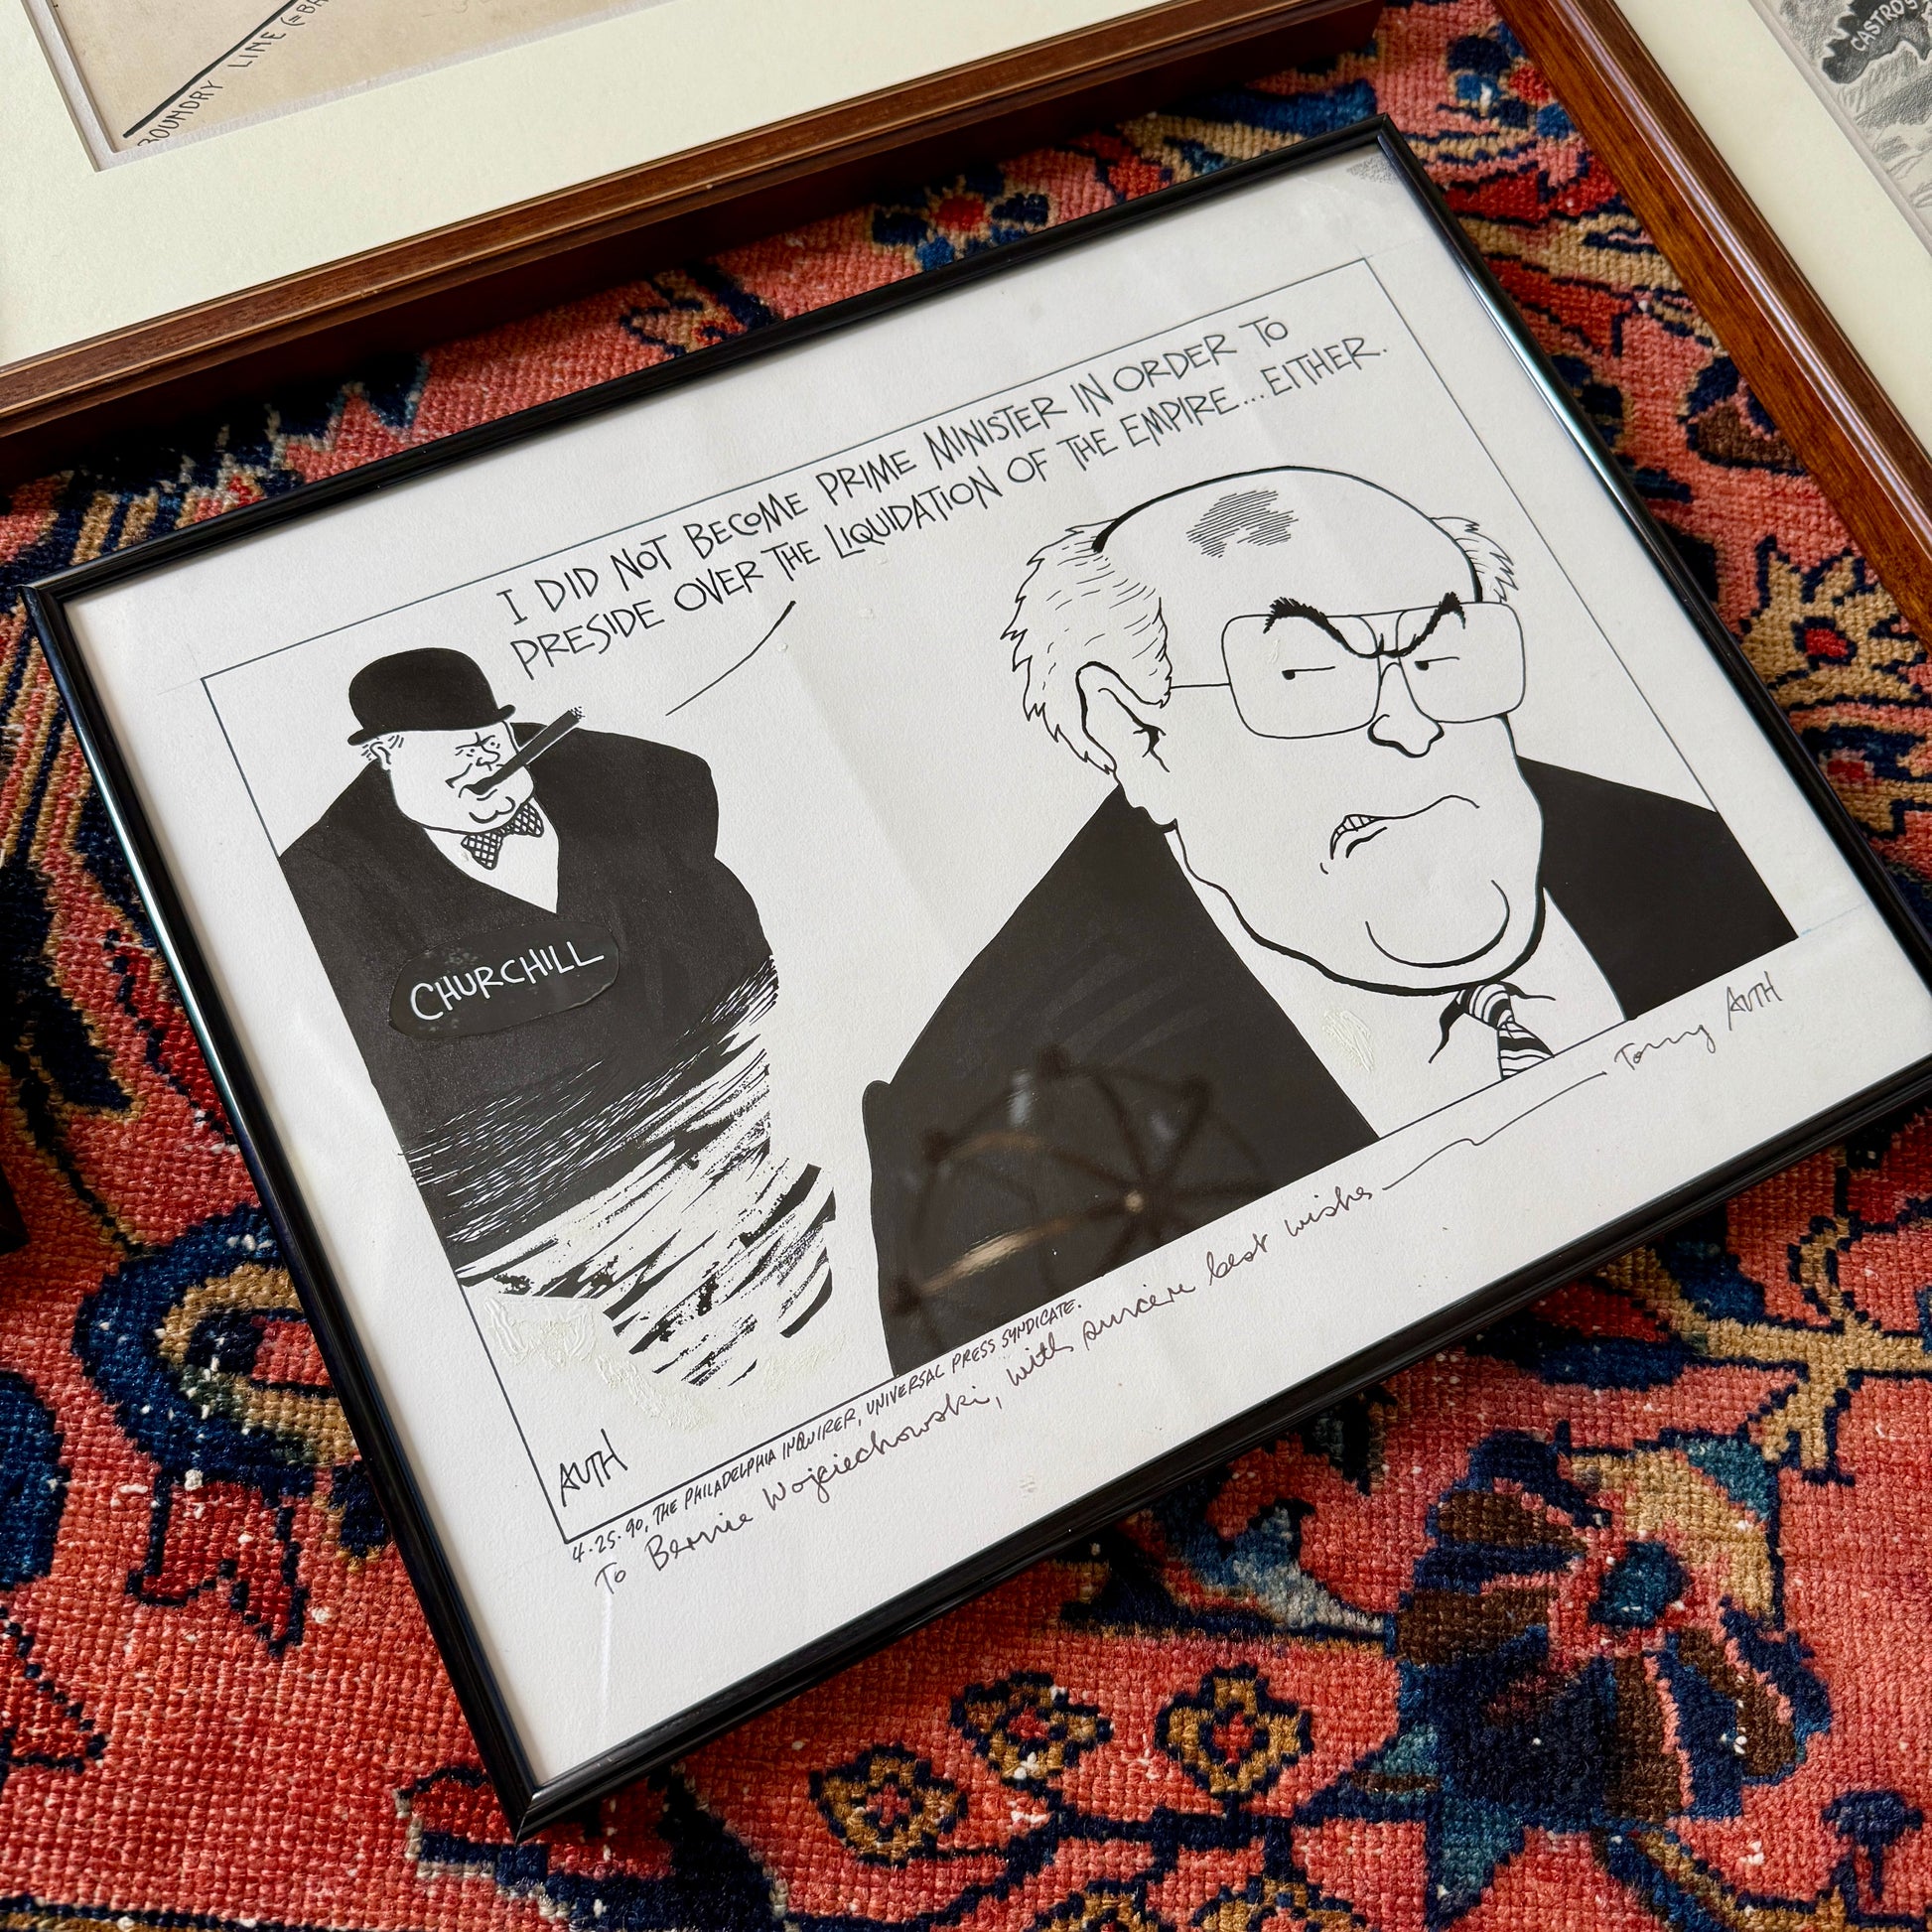 BOUNDRY LINE (=BA
CASTRO'S
I DID NOT BECOME PRIME MINISTER IN ORDER TO
PRESIDE OVER THE LIQUIDATION OF THE EMPIRE...EITHER.
CHURCHILL
AUTH
4·25·90, THE PHILADELPHIA INQUIRER, UNIVERSAL PRESS SYNDICATE.
To Bernie Wojciechowski, with sincere best wishes — Tony AUTH